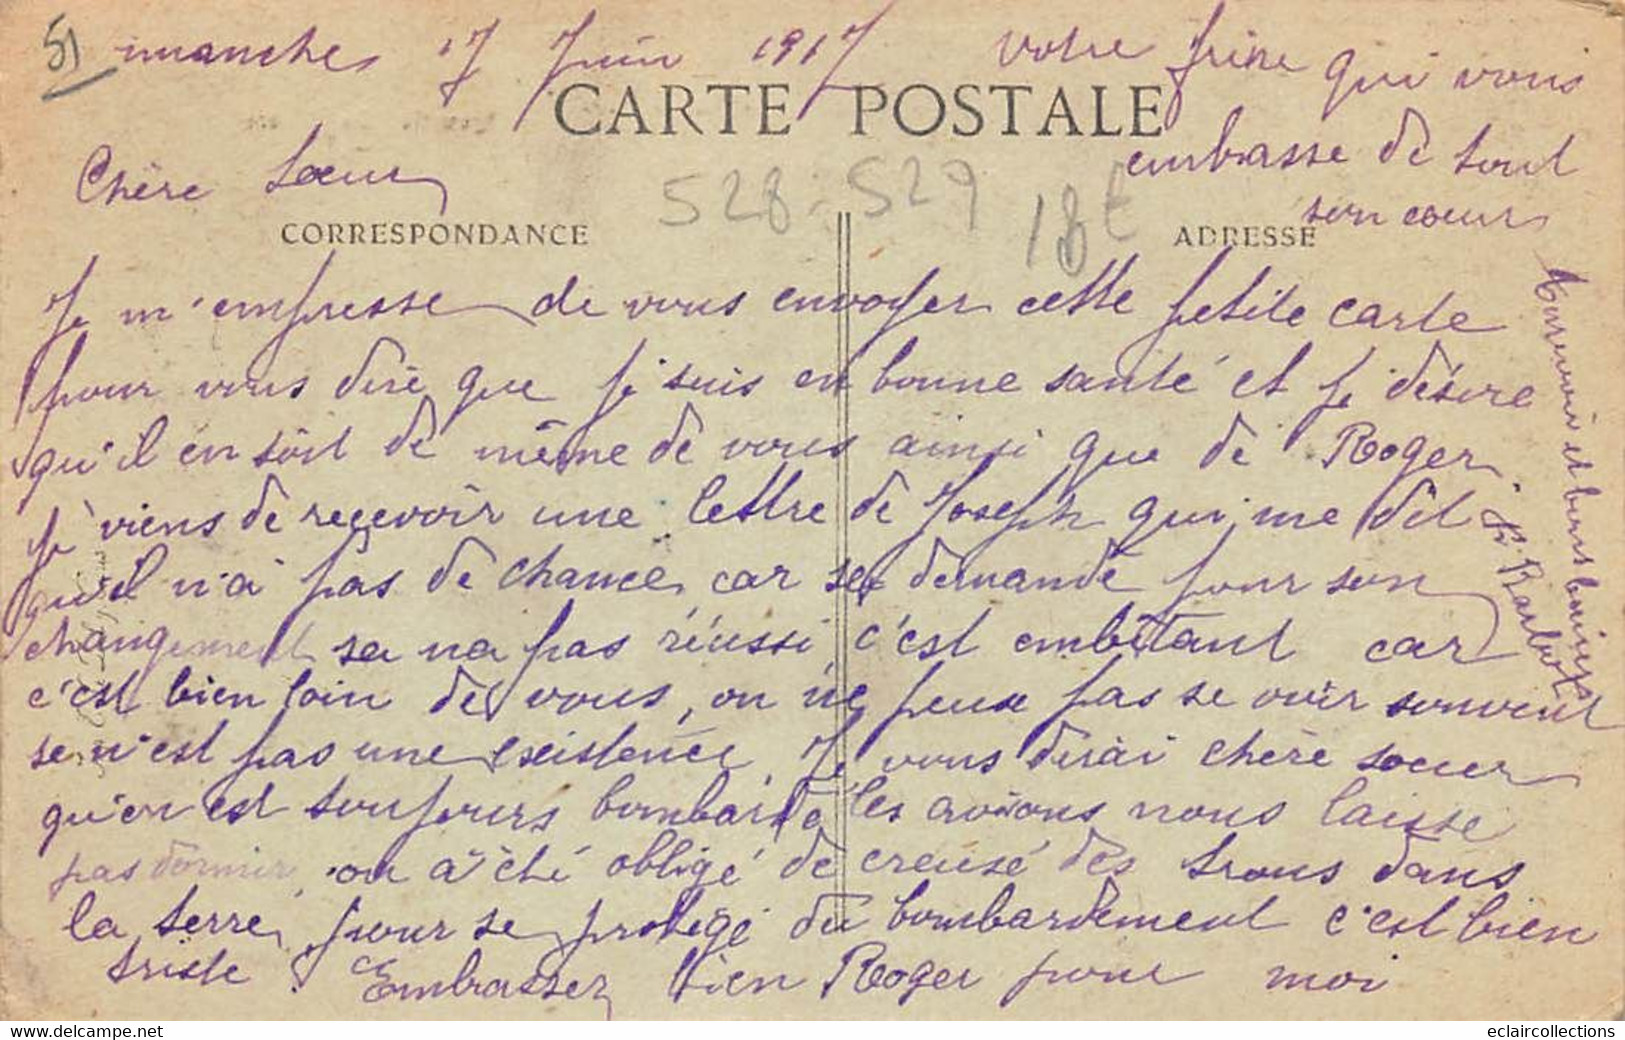 51
imanche 17 Juin 1917
CARTE POSTALE
Chère Soeur
528 : 529
18t
CORRESPONDANCE
ADRESSE
Je m'empresse de vous envoyer cette petite carte
pour vous dire que je suis en bonne santé et je désire
qu'il en soit de même de vous ainsi que de Roger
je viens de reçevoir une lettre de Joseph qui me dit
qu'il n'a pas de chance car sa demande pour son
changement sa na pas réussi, c'est embêtant car
c'est bien loin de vous, on ne peux pas se voir souvent
se n'est pas une existence. Je vous dirai chère soeur
qu'on est toujours bombardé les avions nous laisse
pas dormir, on a été obligé de creusé des trous dans
la terre, pour se protégé du bombardement c'est bien
triste. Embrassez bien Roger pour moi
votre frère qui vous
embrasse de tout
son coeur
Aurevoir et bons baisers
Barbot
eclaircollections